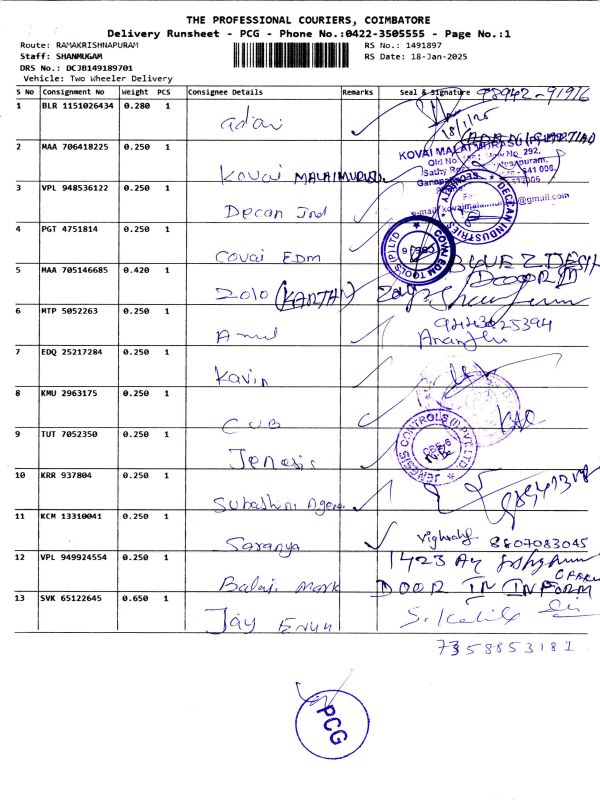 THE PROFESSIONAL COURIERS, COIMBATORE
Delivery Runsheet - PCG - Phone No.:0422-3505555 - Page No.:1
Route: RAMAKRISHNAPURAM RS No.: 1491897
Staff: SHANMUGAM RS Date: 18-Jan-2025
DRS No.: DCJB149189701
Vehicle: Two Wheeler Delivery
S No Consignment No Weight PCS Consignee Details Remarks Seal & Signature 98942-91916
1 BLR 1151026434 0.280 1 adari
18/1/25
2 MAA 706418225 0.250 1 Kovai MALAIMURUSU
KOVAI MALAI MURASU (P)
3 VPL 948536122 0.250 1 Decan Ind
DECCAN INDUSTRIES SECURITY
4 PGT 4751814 0.250 1 Covai EDM
COVAI EDM TOOLS (P) LTD CBE-6
5 MAA 705146685 0.420 1 Zolo (KARTHI)
DOOR
6 MTP 5052263 0.250 1 Amul 9443025394
7 EDQ 25217284 0.250 1 Kavin
8 KMU 2963175 0.250 1 CUB
9 TUT 7052350 0.250 1 Jenesis
JENESIS CONTROLS (I) PVT. LTD CBE-6
10 KRR 937804 0.250 1 Subashni
11 KCM 13310041 0.250 1 Saranya 8807083045
12 VPL 949924554 0.250 1 Balaji
DOOR IN INFORM
13 SVK 65122645 0.650 1 Jay
7358853181
PCG